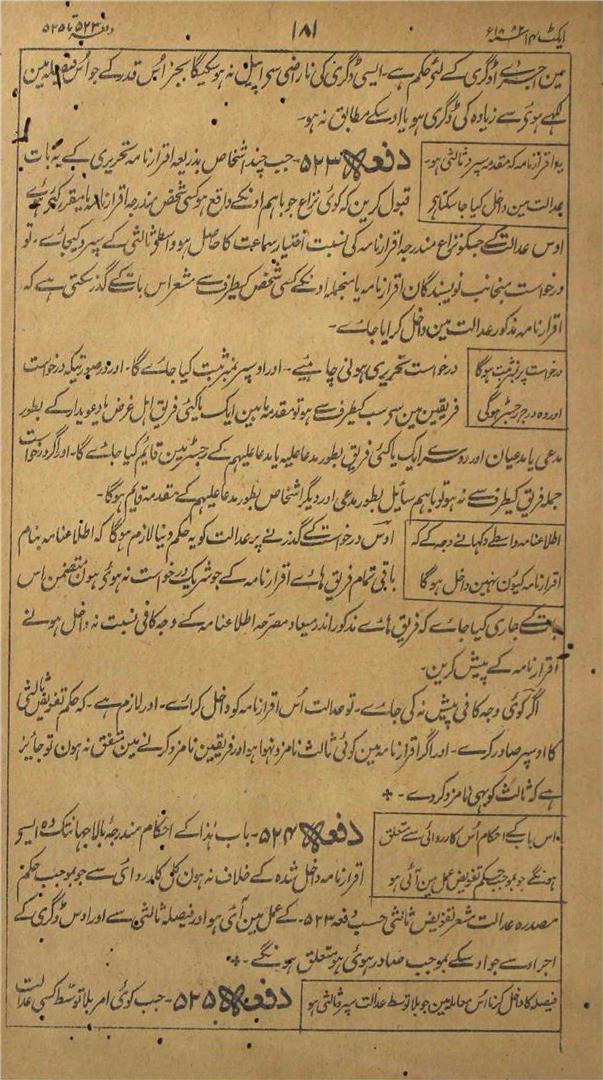 ایکٹ ۱۴ ۱۸۸۲ء
۱۸۱
دفعہ ۵۲۳ تا ۵۲۵
مین اجراے ڈگری کے لئی حکم ہے۔ ایسی ڈگری کی ناراضی سی اپیل نہ ہو سکیگا بجز اُس قدر کے جو اُس فیصلہ مین
لکہے ہوئی سے زیادہ کی ڈگری ہو یا اوسکے مطابق نہ ہو۔
یہ اقرارنامہ کہ مقدمہ سپرد ثالثی ہو۔
عدالت مین داخل کیا جا سکتا ہی
دفعہ ۵۲۳۔ جب چند اشخاص بذریعہ اقرارنامہ تحریری کے یہ بات
قبول کرین کہ کوئی نزاع جو باہم اونکے واقع ہو کسی شخص مندرجہ اقرارنامہ یا مقرر کئی ہوے
اوس عدالت کے جسکو نزاع مندرجہ اقرارنامہ کی نسبت اختیار سماعت کا حاصل ہو واسطی ثالثی کے سپرد کیجائے۔ تو
درخواست منجانب نویسندگان اقرارنامہ یا منجملہ اونکے کسی شخص کیطرف سے مشعر اس بات کے گذر سکتی ہے کہ
اقرارنامہ مذکور عدالت مین داخل کرایا جاے۔
درخواست پر نمبر ثبت ہوگا
اور وہ درج رجسٹر ہوگی
درخواست تحریری ہونی چاہیئے۔ اور اوسپر نمبر ثبت کیا جائے گا۔ اور در صورتیکہ درخواست
فریقین مین سی سب کیطرف سے ہو تو مقدمہ مابین ایک یا کئی فریق اہل غرض یا دعویدار کے بطور
مدعی یا مدعیان اور دوسرے ایک یا کئی فریق بطور مدعا علیہ یا مدعا علیہم کے رجسٹر مین قائم کیا جائے گا۔ اور اگر درخواست
جملہ فریق کیطرف سے نہ ہو تو باہم سائل بطور مدعی اور دیگر اشخاص بطور مدعا علیہم کے مقدمہ قایم ہوگا۔
اطلاعنامہ واسطے دکہانے وجہ کے کہ
اقرارنامہ کیون نہین داخل ہوگا
اوس درخواست کے گذرنے پر عدالت کو یہ حکم دینا لازم ہوگا کہ اطلاعنامہ بنام
باقی تمام فریق ہاے اقرارنامہ کے جو شریک درخواست نہ ہوئی ہون متضمن اس
بات کے جاری کیا جاے کہ فریق ہاے مذکور اندر میعاد مصرحہ اطلاعنامہ کے وجہ کافی نسبت نہ داخل ہونے
اقرارنامہ کے پیش کرین۔
اگر کوئی وجہ کافی پیش نہ کی جاے۔ تو عدالت اُس اقرارنامہ کو داخل کرائے۔ اور لازم ہے۔ کہ حکم تفویض ثالثی
کا اوسپر صادر کرے۔ اور اگر اقرارنامہ مین کوئی ثالث نامزد نہوا ہو اور فریقین نامزد کرنے مین متفق نہ ہون تو جائز
ہے کہ ثالث کو بھی نامزد کر دے۔
اس باب کے احکام اُس کارروائی سے متعلق
ہونگے جو بموجب حکم تفویض عمل مین آئی ہو
دفعہ ۵۲۴۔ باب ہذا کے احکام مندرجہ بالا جہانتک وہ ایسی
اقرارنامہ داخل شدہ کے خلاف نہ ہون کل کارروائی سے جو بموجب حکم
مصدرہ عدالت مشعر تفویض ثالثی حسب دفعہ ۵۲۳۔ کے عمل مین آئی ہو اور فیصلہ ثالثی سے اور اوس ڈگری کے
اجراء سے جو اوسکے بموجب صادر ہوئی ہو متعلق ہونگے۔
فیصلہ کا داخل کرنا اُس معاملہ مین جو بلا توسط عدالت سپرد ثالثی ہو
دفعہ ۵۲۵۔ جب کوئی امر بلا توسط کسی عدالت